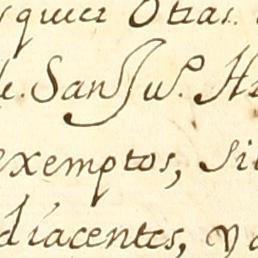 squier Otras.
de. San Ju.º H
exemptos, si
diacentes, y